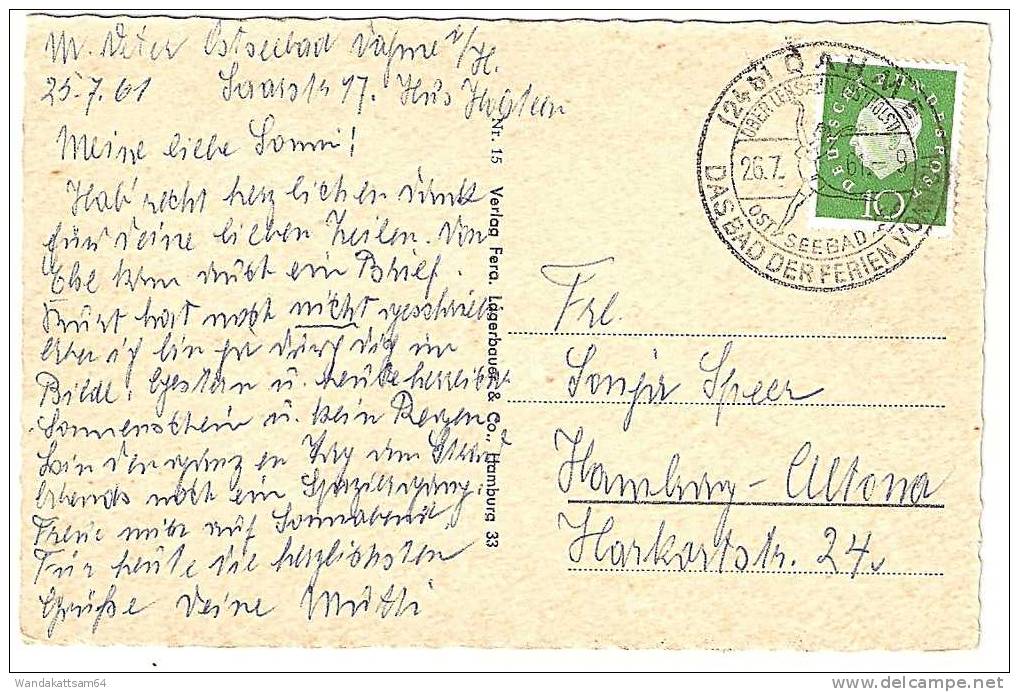 Ostseebad Dahme i/H.
25.7.61
Meine liebe Sonni!
Hab' recht herzlichen Dank
für Deine lieben Zeilen. Von
Ebe kam auch ein Brief.
Kurt hat noch nicht geschrieb.
Aber ich bin ja durch Dich im
Bilde. Gestern u. heute herrlicher
Sonnenschein u. kein Regen
bin den ganzen Tag am Strand
Abends noch ein Spaziergang.
Freue mich auf Sonnabend.
Für heute die herzlichsten
Grüße Deine Mutti
Nr. 15 Verlag Fera, Lagerbauer & Co., Hamburg 33
(24b) DAHME
ÜBER LENSAHN (HOLST)
26.7. 61.- 9
OSTSEEBAD
DAS BAD DER FERIEN VON
DEUTSCHE BUNDESPOST
10
Frl.
Sonja Speer
Hamburg-Altona
Harkortstr. 24
Wandakattsam64
delcampe.net